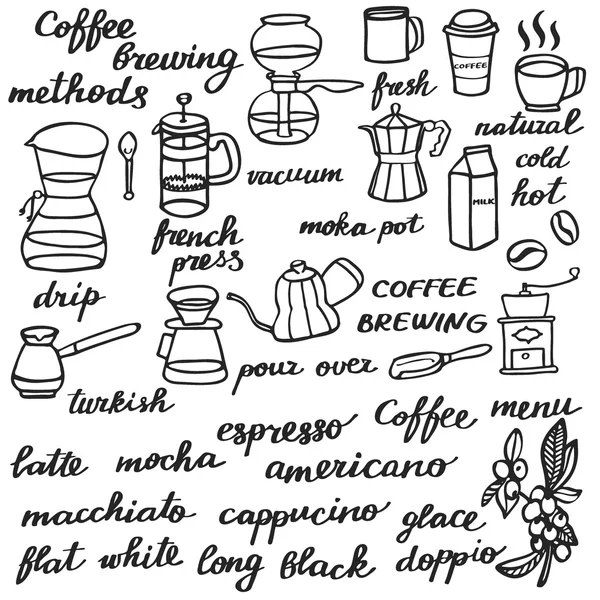 Coffee
brewing
methods
fresh
COFFEE
natural
cold
hot
vacuum
MILK
french
press
moka pot
drip
COFFEE
BREWING
pour over
turkish
espresso
Coffee menu
latte
mocha
americano
macchiato
cappucino
glace
flat white
long black
doppio